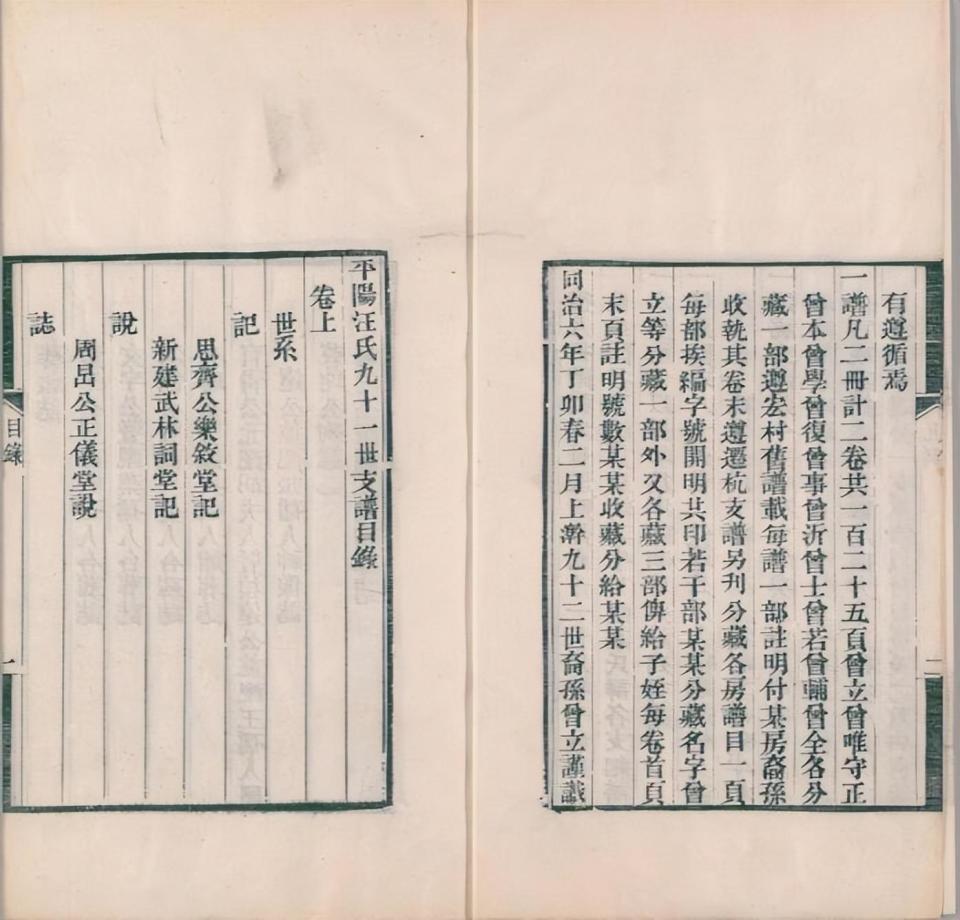 有遵循焉
一譜凡二冊計二卷共一百二十五頁曾立曾唯守正
曾本曾學曾復曾事曾沂曾士曾若曾輔曾全各分
藏一部遵宏村舊譜載每譜一部註明付某房裔孫
收執其卷末遵遷杭支譜另刋分藏各房譜目一頁
每部挨編字號開明共印若干部某某分藏名字曾
立等分藏一部外又各藏三部俾給子姪每卷首頁
末頁註明號數某某收藏分給某某
同治六年丁卯春二月上澣九十二世裔孫曾立謹識
二
平陽汪氏九十一世支譜目錄
卷上
世系
記
思齊公樂敘堂記
新建武林祠堂記
說
周呂公正儀堂說
誌
目錄
一